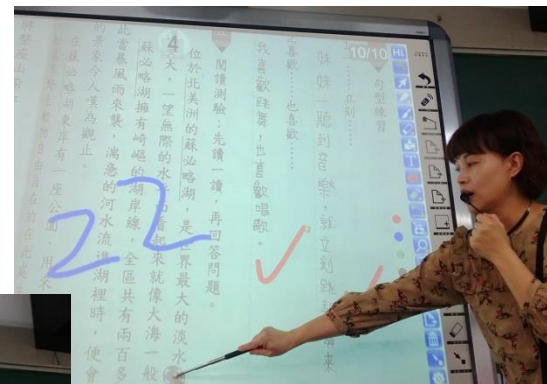 10/10
Hi
句型練習
……立刻……
妹妹一聽到音樂,就立刻跳
來
喜歡……也喜歡……
我喜歡跳舞,也喜歡唱歌。
閱讀測驗:先讀一讀,再回答問題。
位於北美洲的蘇必略湖,是世界最大的淡水
4
大,一望無際的水
看起來就像大海一般
蘇必略湖擁有崎嶇的湖岸線,全區共有兩百多
此當暴風雨來襲,湍急的河水流進湖裡時,便會
的景象令人嘆為觀止。
在蘇必略湖東岸有一座公園,用來
自由自在的在此
22